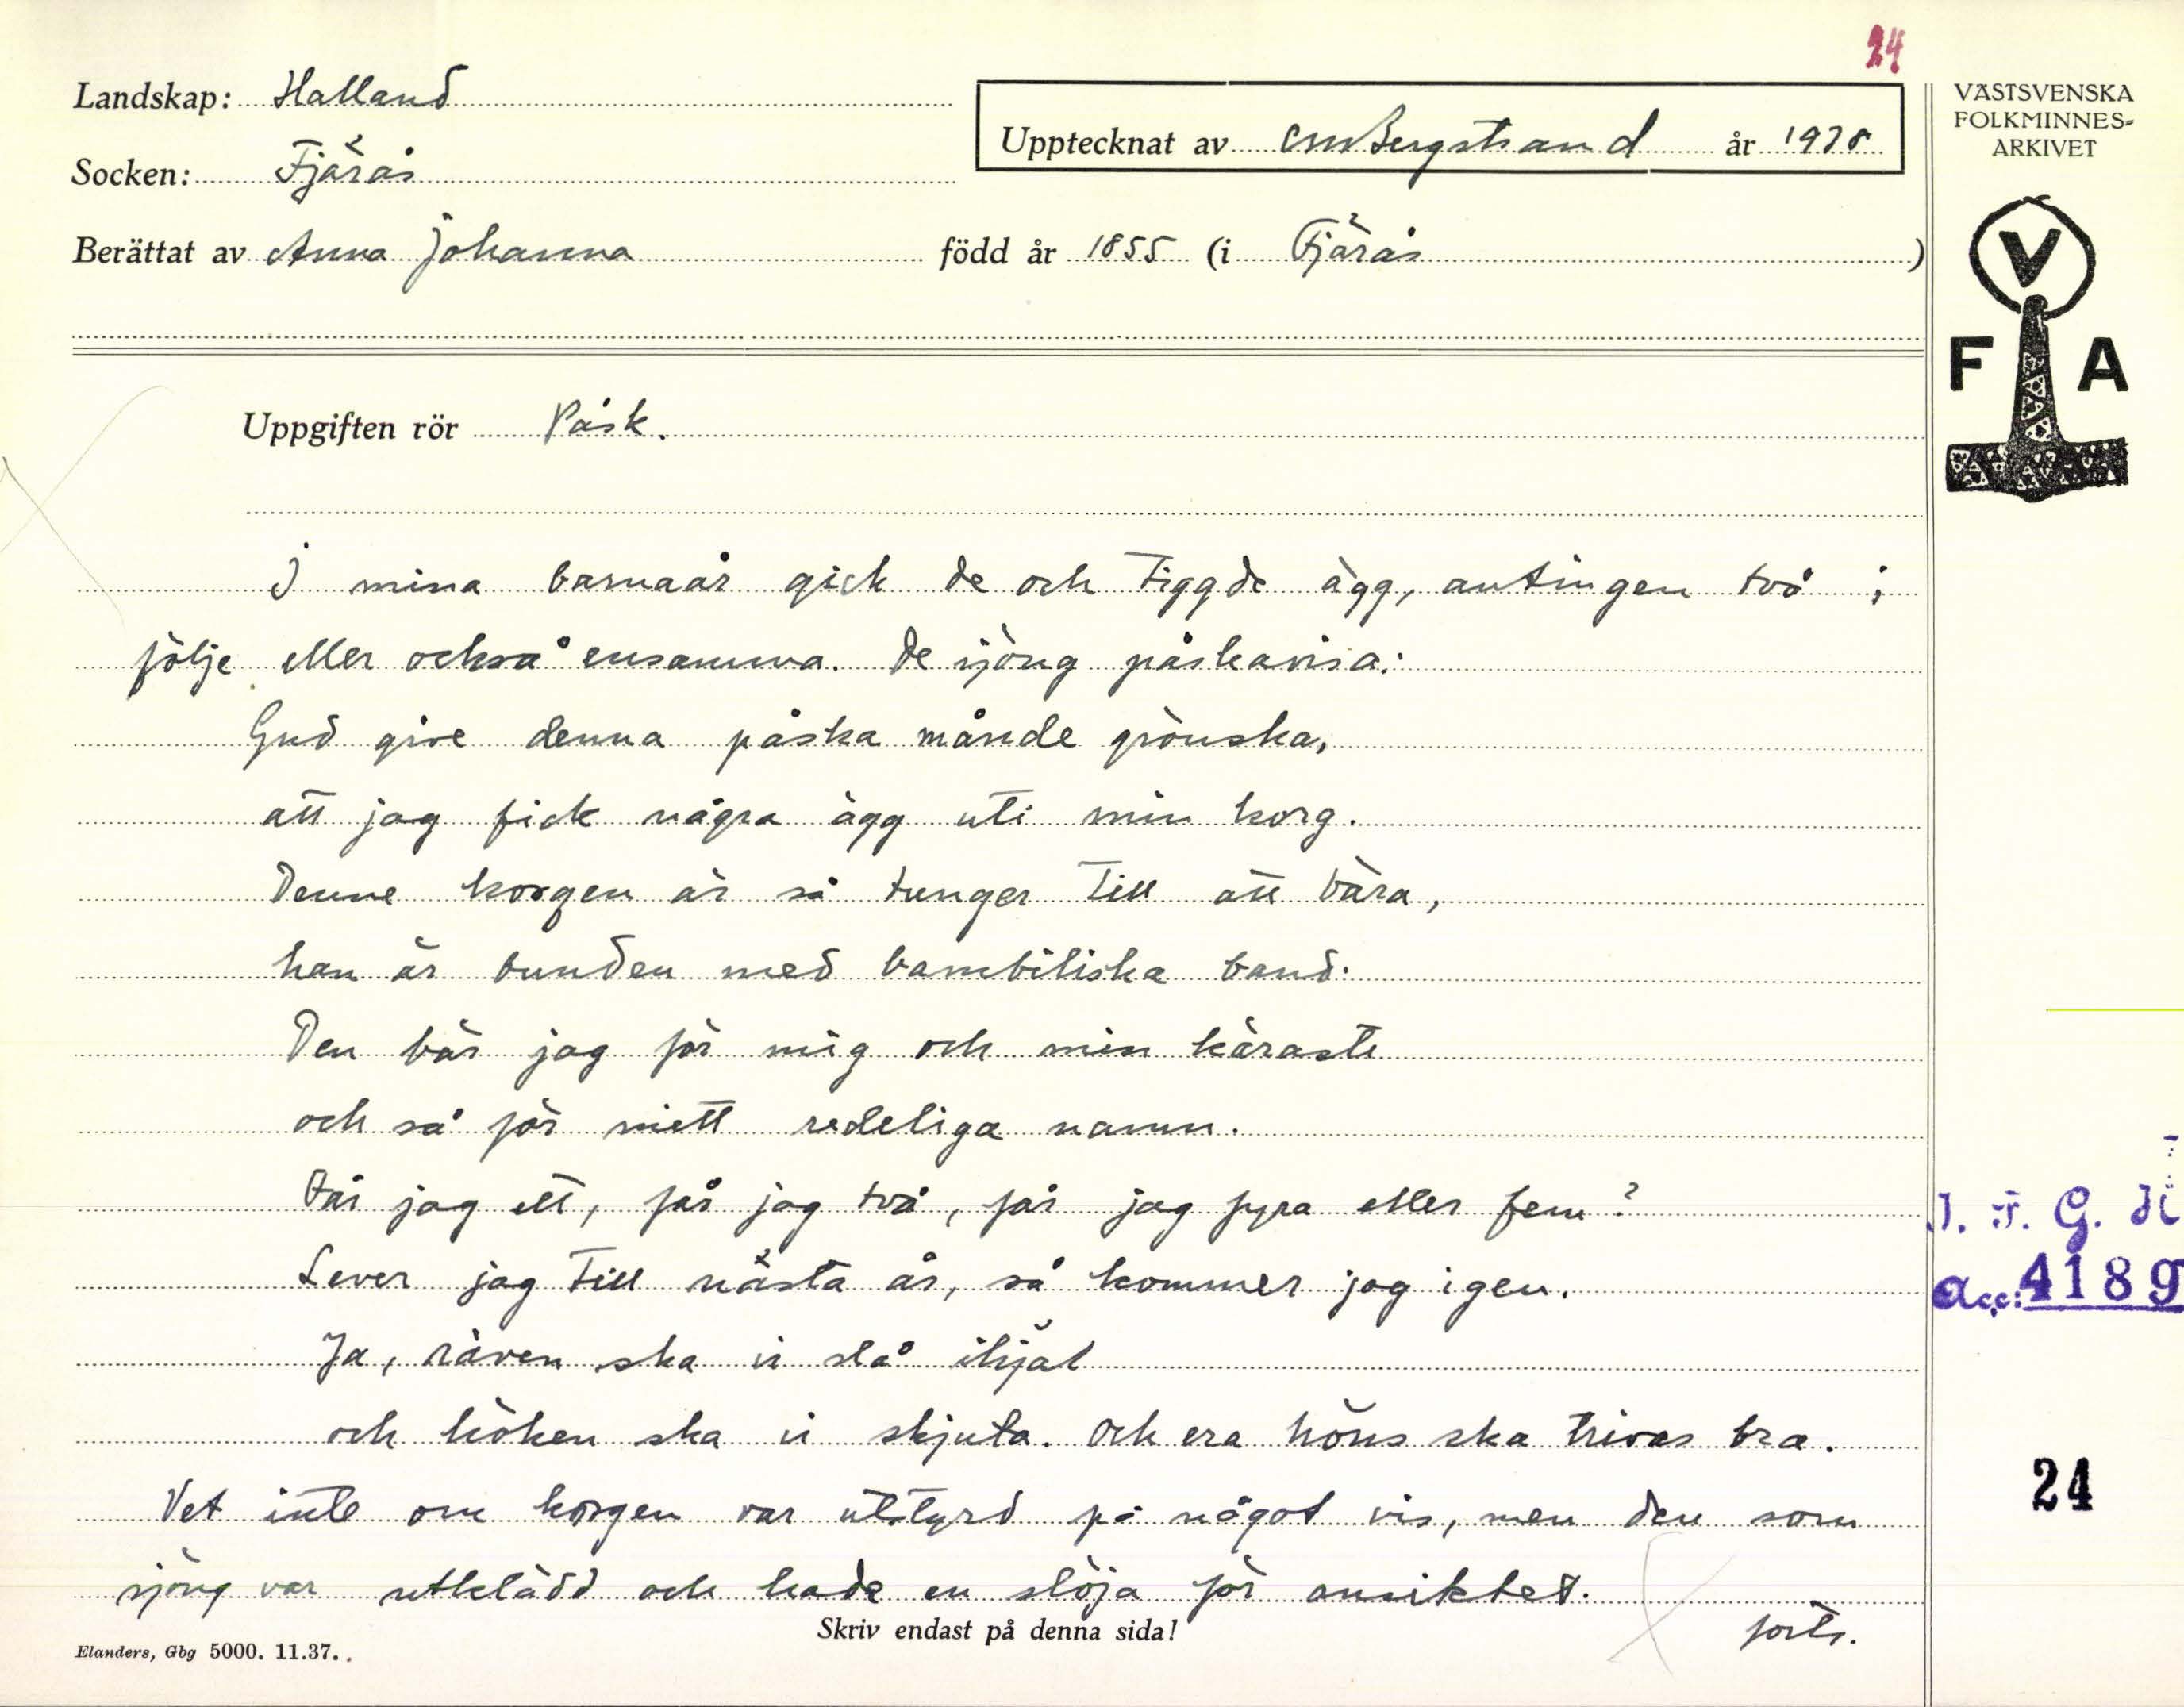 24
Landskap: Halland
Socken: Fjärås
Upptecknat av CMBergstrand år 1938
Berättat av Anna Johanna född år 1855 (i Fjärås)
Uppgiften rör Påsk.
I mina barnaår gick de och tiggde ägg, antingen två i
följe eller också ensamma. De sjöng påskavisa:
Gud give denna påska månde grönska,
att jag fick några ägg uti min korg.
Denne korgen är så tunger till att bära,
han är bunden med bambiliska band.
Den bär jag för mig och min käraste
och så för mitt redeliga namn.
Får jag ett, får jag två, får jag fyra eller fem?
Lever jag till nästa år, så kommer jag igen.
Ja, räven ska vi slå ihjäl
och höken ska vi skjuta. Och era höns ska trivas bra.
Vet inte om korgen var utstyrd på något vis, men den som
sjöng var utklädd och hade en slöja för ansiktet.
forts.
Skriv endast på denna sida!
Elanders, Gbg 5000. 11.37.
VÄSTSVENSKA
FOLKMINNES-
ARKIVET
V
F A
I. F. G. H
acc: 4189
24